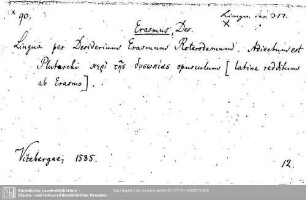 * 90.
Lingu. var. 317.
x
Erasmus, Des.
Lingua per Desiderium Erasmum Roterodamum. Adiectum est
Plutarchi περὶ τῆς δυσωπίας opusculum [latine redditum
ab Erasmo].
Vitebergae, 1535.
12.
Sächsische Landesbibliothek -
Staats- und Universitätsbibliothek Dresden